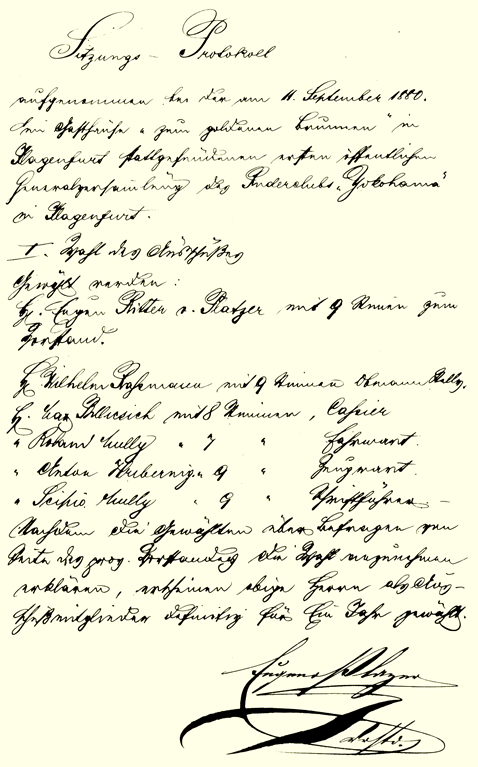 Sitzungs-Protokoll
aufgenommen bei der am 11. September 1880.
beim Gasthause "zum goldenen Brunnen" in
Klagenfurt stattgefundenen ersten öffentlichen
Generalversamlung des Ruderclubs "Yokohama"
in Klagenfurt.
I. Wahl des Ausschußes
Gewält werden:
H. Eugen Ritter v. Platzer mit 9 Stimen zum
Vorstand.
H. Wilhelm Rassmann mit 9 Stimmen Obmann Stellv.
H. Max Billicsich mit 8 Stimmen, Cassier
" Roland Mully " 7 " Fahrwart.
" Anton " 9 " Zeugwart.
" Scipio Mully " 9 " Schriftführer
Nachdem die Gewählten über Befragen von
Seite des prov. Vorstandes die Wahl anzunehmen
erklären, erscheinen obige Herrn als Aus-
schußmitglieder definitiv für Ein Jahr gewählt.
Eugen Platzer
Vorstd.